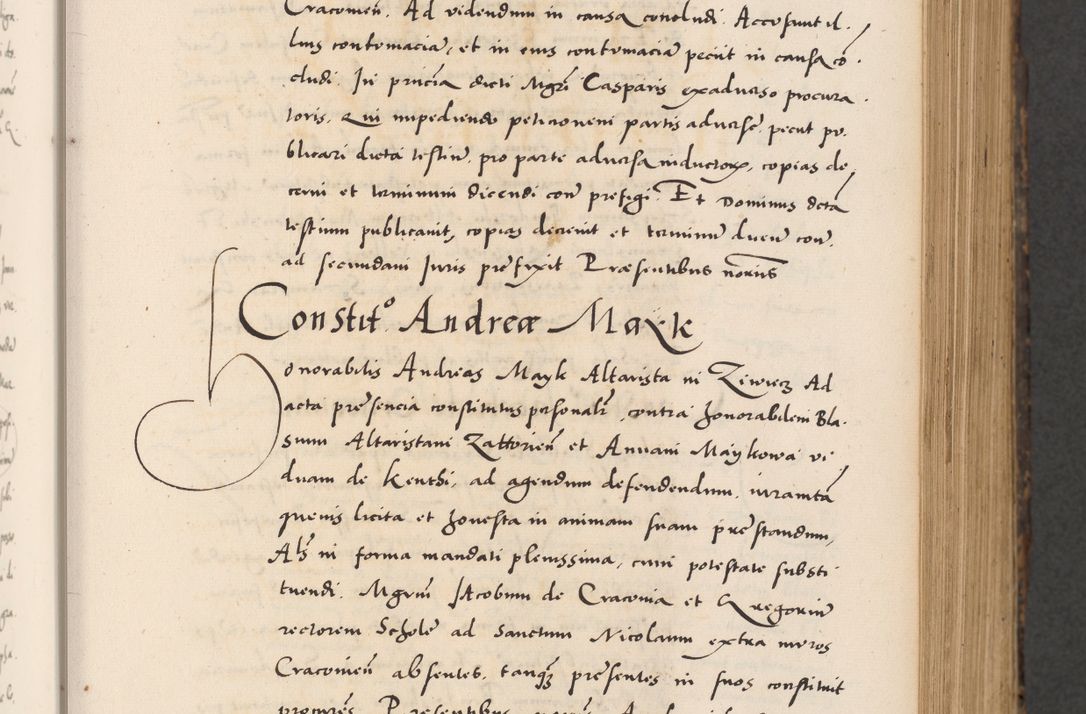 Cracovien̄. Ad videndum in causa concludi. Accusavit il-
lius contumaciā, et in eius contumaciā peciit in causa cō-
cludi. In pn̄cia dicti Mgr̄i Casparis ex adverso procura-
toris. Qui impediendo peticionem partis adversę. peciit pu-
blicari dicta testiū. pro parte adversa inductorꝝ, copias de-
cerni et terminum dicendi con̄ prefigi. Et Dominus dcta
testium publicavit, copias decrevit et terminū dicēn̄ con̄.
ad secundam Juris prefixit Præsentibus notariis
Constito. Andreæ Mayk
Honorabilis Andreas Mayk Altarista in Ziwiecz Ad
acta presencia constitutus personalr̄. contra honorabilem Bla-
sium Altaristam Zattorien̄ et Annam Maykowa vi-
duam de Kenthi. ad agendum defendendum. iuramēta
quevis licita et honesta in animam suam prestandum,
Als̄ in forma mandati plenissima, cum potestate substi-
tuendi. Mgrum̄ Jacobum de Cracovia et Gregoriū
rectorem Scholę ad Sanctum Nicolaum extra muros
Cracovien̄ absentes. tanqꝫ presentes in suos constituit
procures̄. Presentibus